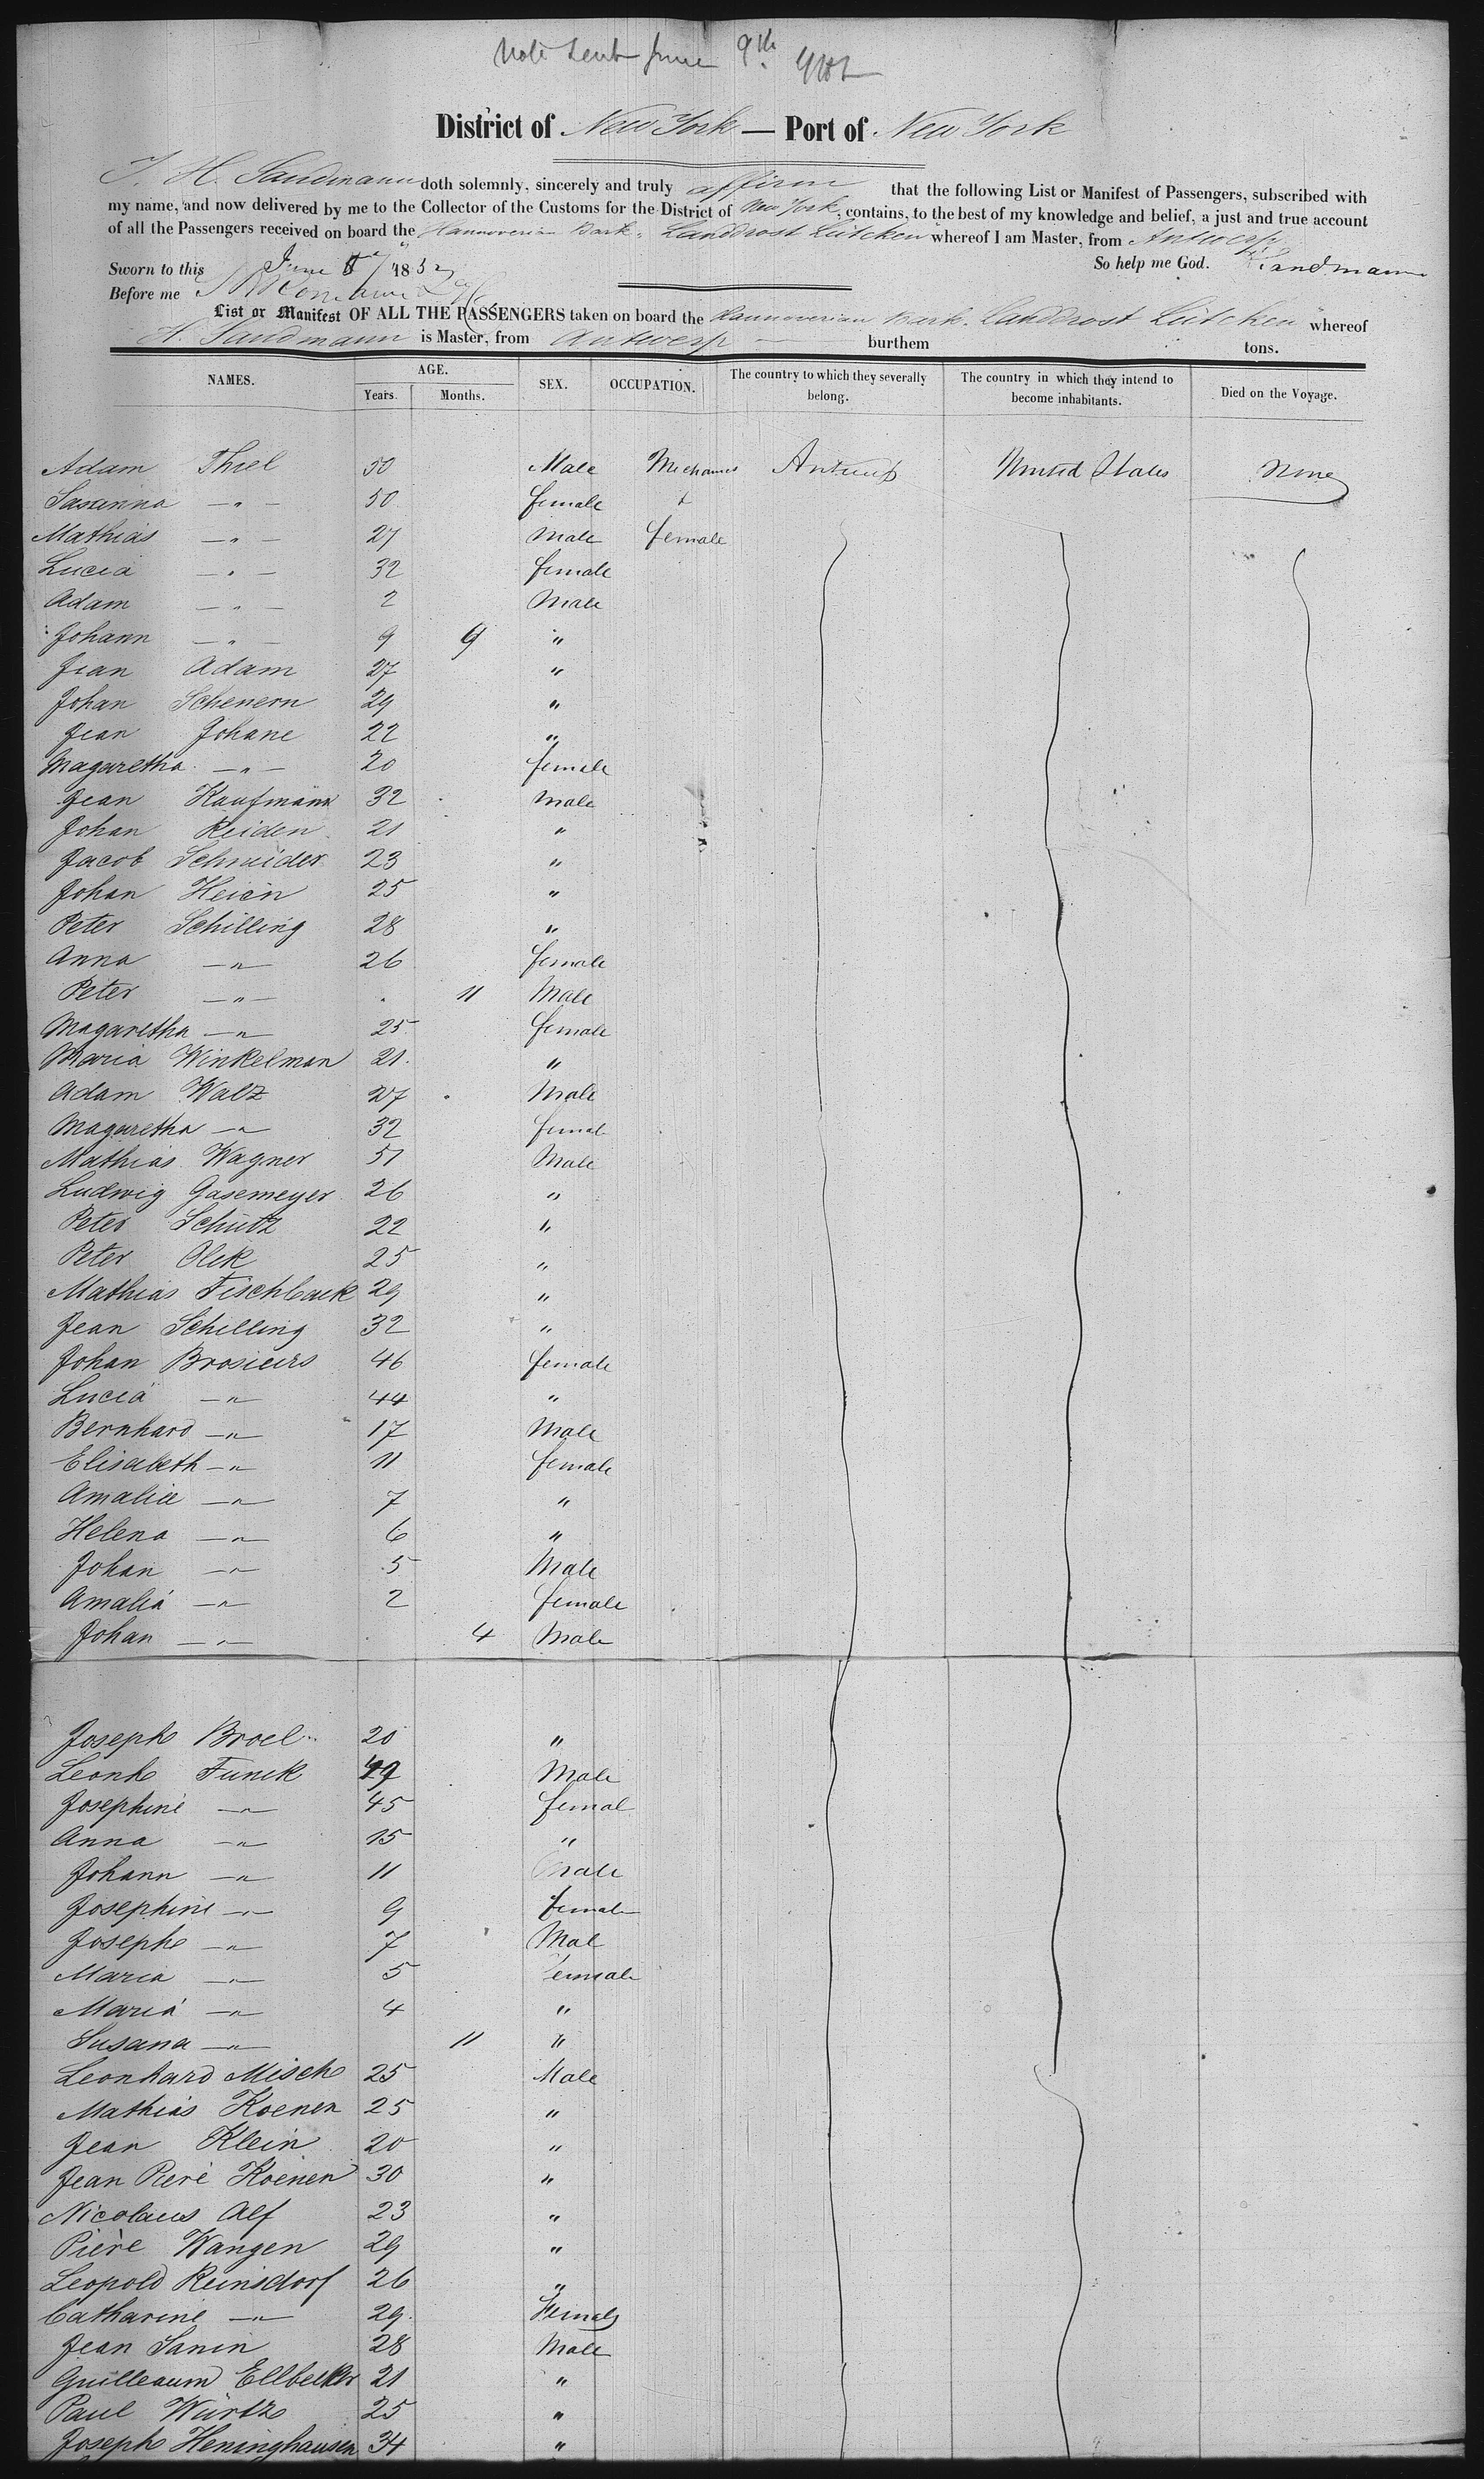 Note Sent June 9th
District of New York — Port of New York
J. H. Sandmann doth solemnly, sincerely and truly affirm that the following List or Manifest of Passengers, subscribed with
my name, and now delivered by me to the Collector of the Customs for the District of New York, contains, to the best of my knowledge and belief, a just and true account
of all the Passengers received on board the Hannoverian Bark. Landdrost Lütcken whereof I am Master, from Antwerp
Sworn to this June 185 So help me God. Sandmann
Before me
List or Manifest OF ALL THE PASSENGERS taken on board the Hannoverian Bark. Landdrost Lütcken whereof
H. Sandmann is Master, from Antwerp — burthem tons.
NAMES. AGE. Years. Months. SEX. OCCUPATION. The country to which they severally belong. The country in which they intend to become inhabitants. Died on the Voyage.
Adam Thiel 50 Male Mechanics Antwerp United States None
Sasanna —"— 50 female
Mathias —"— 27 Male female
Lucia —"— 32 female
Adam —"— 2 Male
Johann —"— 9 9 "
Jean Adam 27 "
Johan Schenern 29 "
Jean Johane 22 "
Magaretha —"— 20 female
Jean Kaufmann 32 Male
Johan Reiden 21 "
Jacob Schneider 23 "
Johan Heicn 25 "
Peter Schilling 28 "
Anna —"— 26 female
Peter —"— 11 Male
Magaretha —"— 25 female
Maria Winkelman 21. "
Adam Walz 27 Male
Magaretha —"— 32 femal
Mathias Wagner 51 Male
Ludwig Gasemeyer 26 "
Peter Schütz 22 "
Peter Olek 25 "
Mathias Fischback 29 "
Jean Schilling 32 "
Johan Brosieurs 46 female
Lucia —"— 44 "
Bernhard —"— 17 Male
Elisabeth —"— 11 female
Amalia —"— 7 "
Helena —"— 6 "
Johan —"— 5 Male
Amalia —"— 2 female
Johan —"— 4 Male
Joseph Broel 20 "
Leonh Funck 49 Male
Josephine —"— 45 femal
Anna —"— 15 "
Johann —"— 11 Male
Josephine —"— 9 female
Joseph —"— 7 Mal
Maria —"— 5 female
Maria —"— 4 "
Susana —"— 11 "
Leonhard Misch 25 Male
Mathias Koenen 25 "
Jean Klein 20 "
Jean Pierè Koenen 30 "
Nicolaus Alf 23 "
Pière Wangen 29 "
Leopold Reinsdorf 26 "
Catharine —"— 29. Female
Jean Sanin 28 Male
Guilleaum Ellbecker 21 "
Paul Würtz 25 "
Joseph Heninghausen 34 "